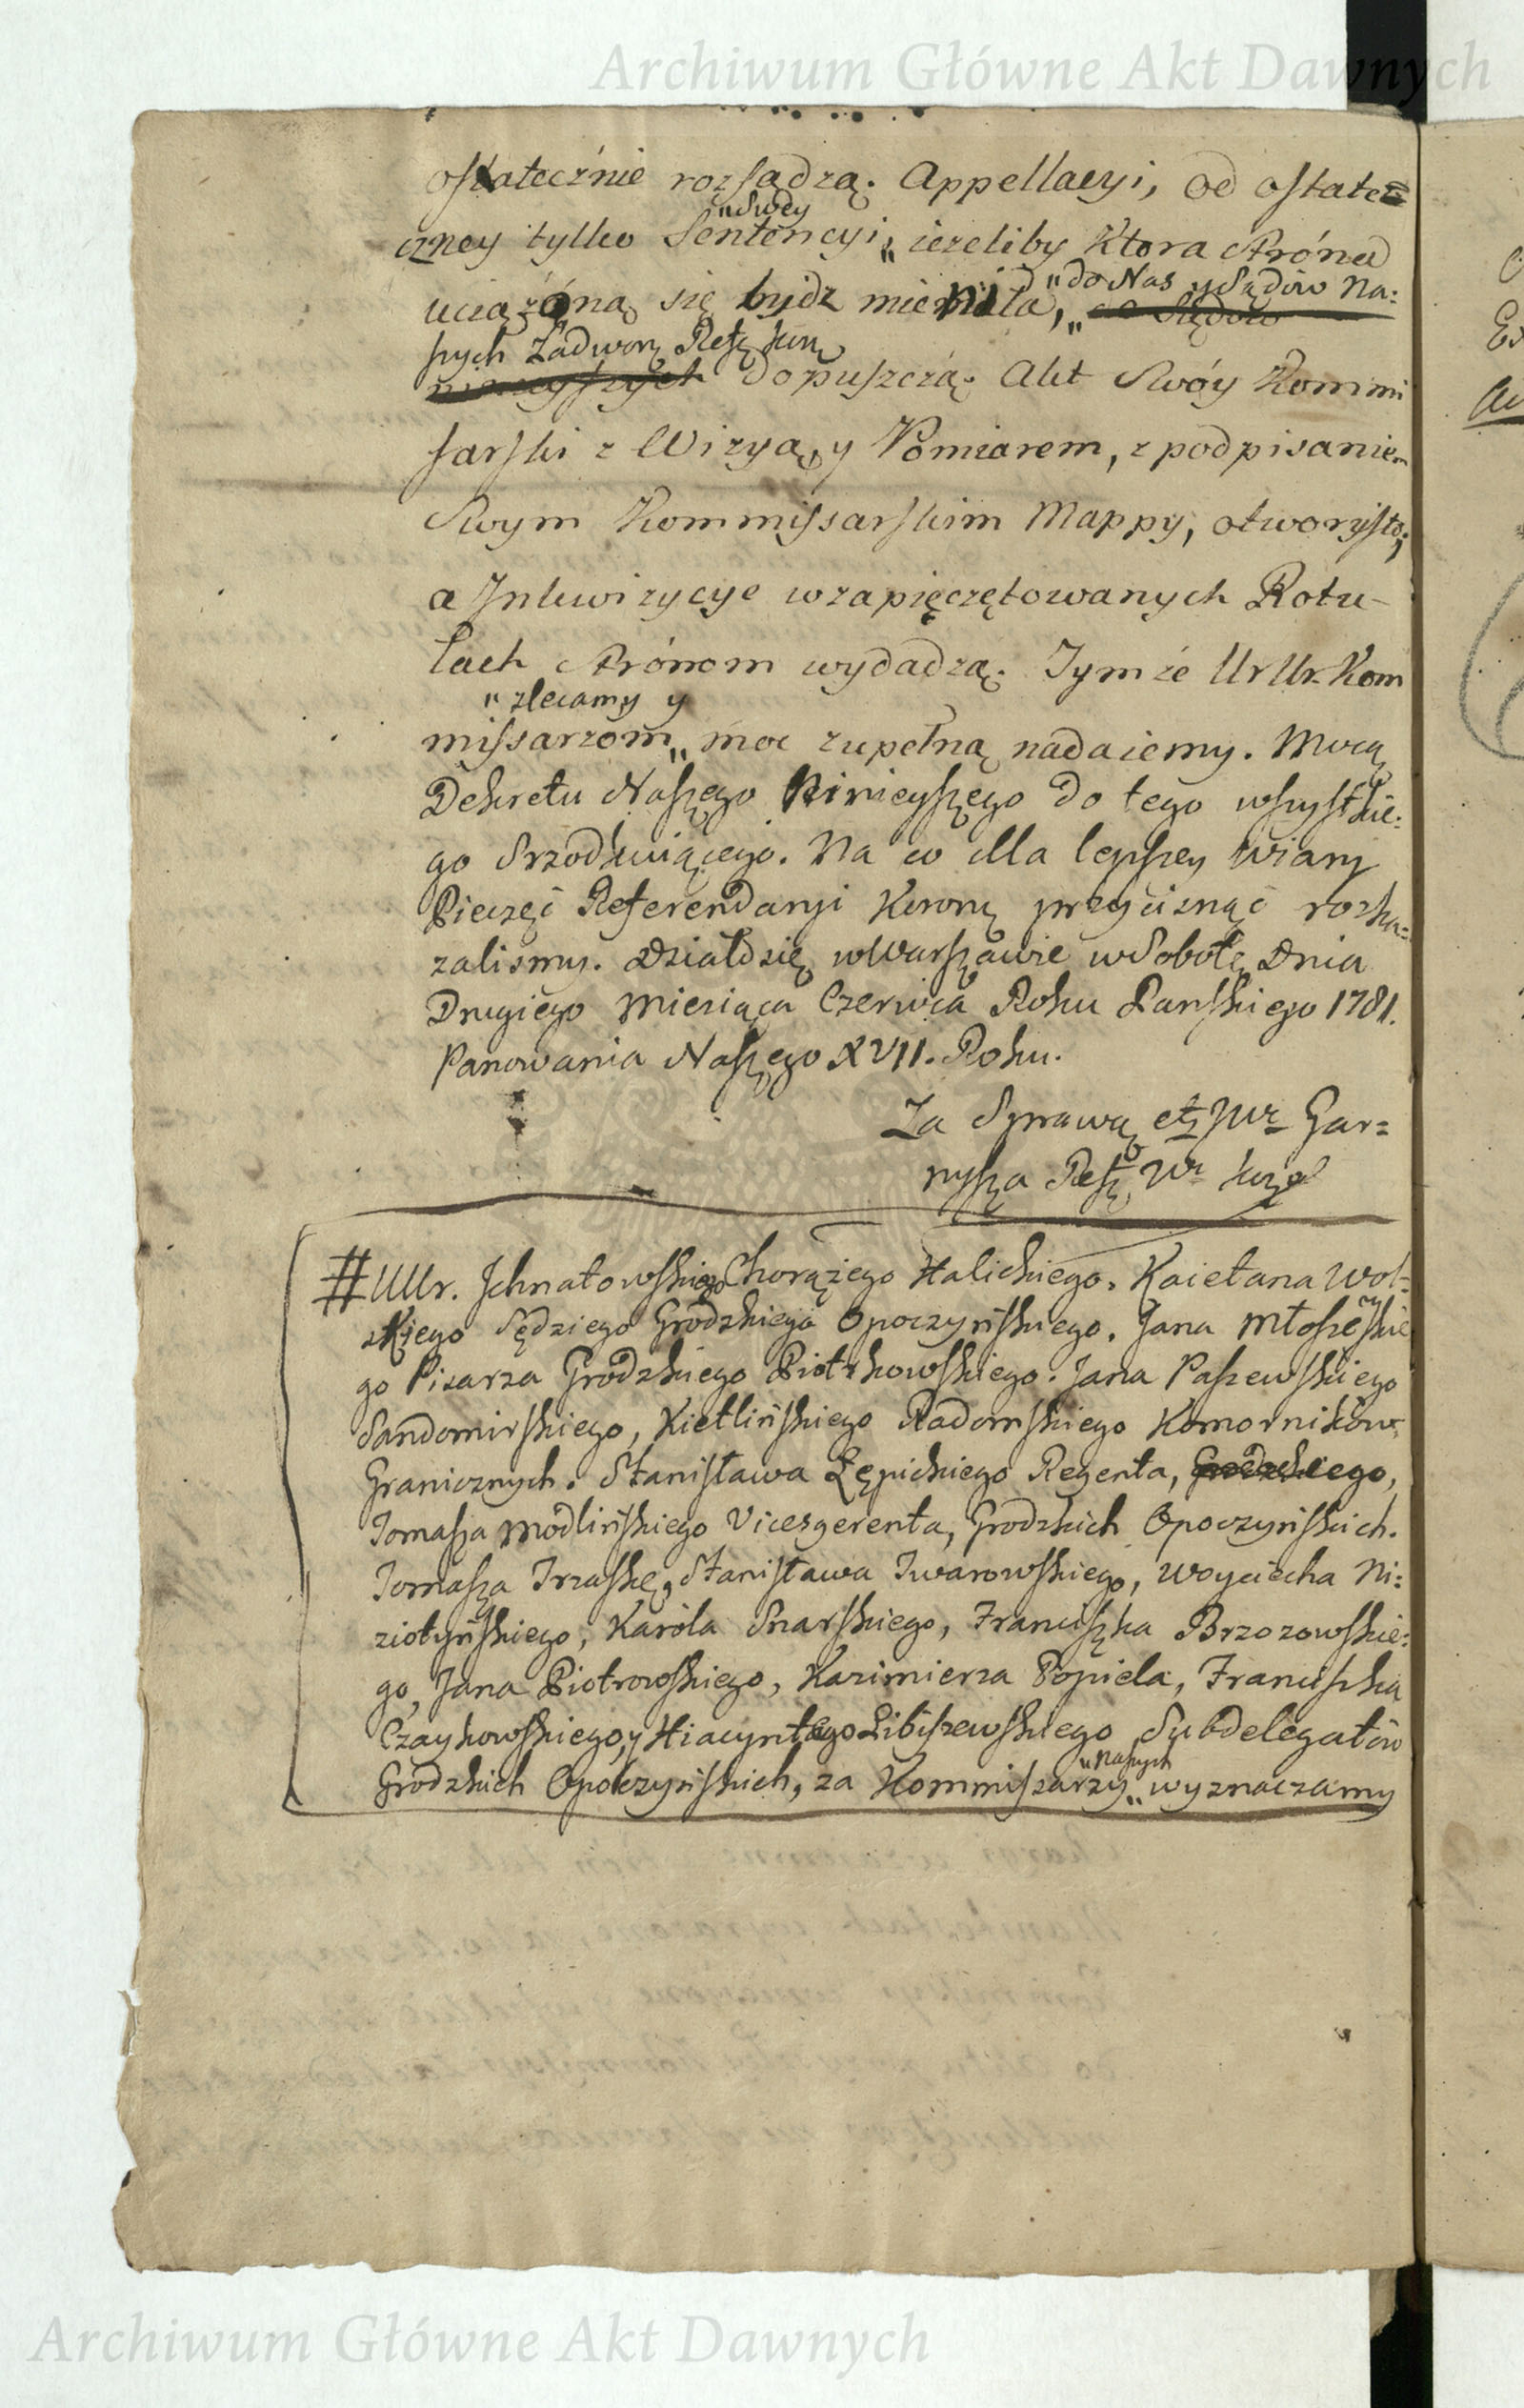 Archiwum Główne Akt Dawnych
ostatecznie rozsądzą. Appellacyi, od ostate=
"swey
czney tylko Sentencyi„ iezeliby Ktora Strona
"do Nas y Sądów Na:
uciążoną się bydz mieniła,„ do Sądow
szych Zadwor. Refer. Kor.
ninieyszych dopuszczą. Akt Swóy Kommi
sarski z Wizyą, y Pomiarem, z podpisaniem
Swym Kommissarskim Mappy, otworzysto;
a Inkwizycye w zapięczętowanych Rotu-
łach Strónom wydadzą. Tymże Ur Ur. Kom
"zlecamy y
missarzom„ moc zupełną nadaiemy. Mocą
Dekretu Naszego Ninieyszego do tego wszystkie:
go Srzodkuiącego. Na co dla lepszey Wiary
Pieczęć Referendaryi Koronn. przycisnąć rozka=
zalismy. Działo się w Warszawie w Sobotę Dnia
Drugiego Miesiąca Czerwca Roku Pańskiego 1781.
Panowania Naszego XVII. Roku.
Za Sprawą etc JWr Gar=
nysza Refer. Wr Kor.
# UUr. Ichnatowskiego Chorążego Halickiego. Kaietana Wol-
skiego Sędziego Grodzkiego Opoczyńskiego. Jana Młoszeskie
go Pisarza Grodzkiego Piotrkowskiego. Jana Paszewskiego
Sandomirskiego, Kietlińskiego Radomskiego Komorników
Granicznych. Stanisława Łępickiego Regenta, Grodzkiego,
Tomasza Modlińskiego Vicesgerenta, Grodzkich Opoczyńskich.
Tomasza Trzaskę, Stanisława Twarowskiego, Woyciecha Ni:
ziołyńskiego, Karóla Snarskiego, Franciszka Brzozowskie:
go, Jana Piotrowskiego, Kazimierza Popiela, Franciszka
Czaykowskiego, y Hiacyntego Libiszewskiego Subdelegatów
"Naszych
Grodzkich Opoczyńskich, za Kommissarzy„ wyznaczamy
Archiwum Główne Akt Dawnych